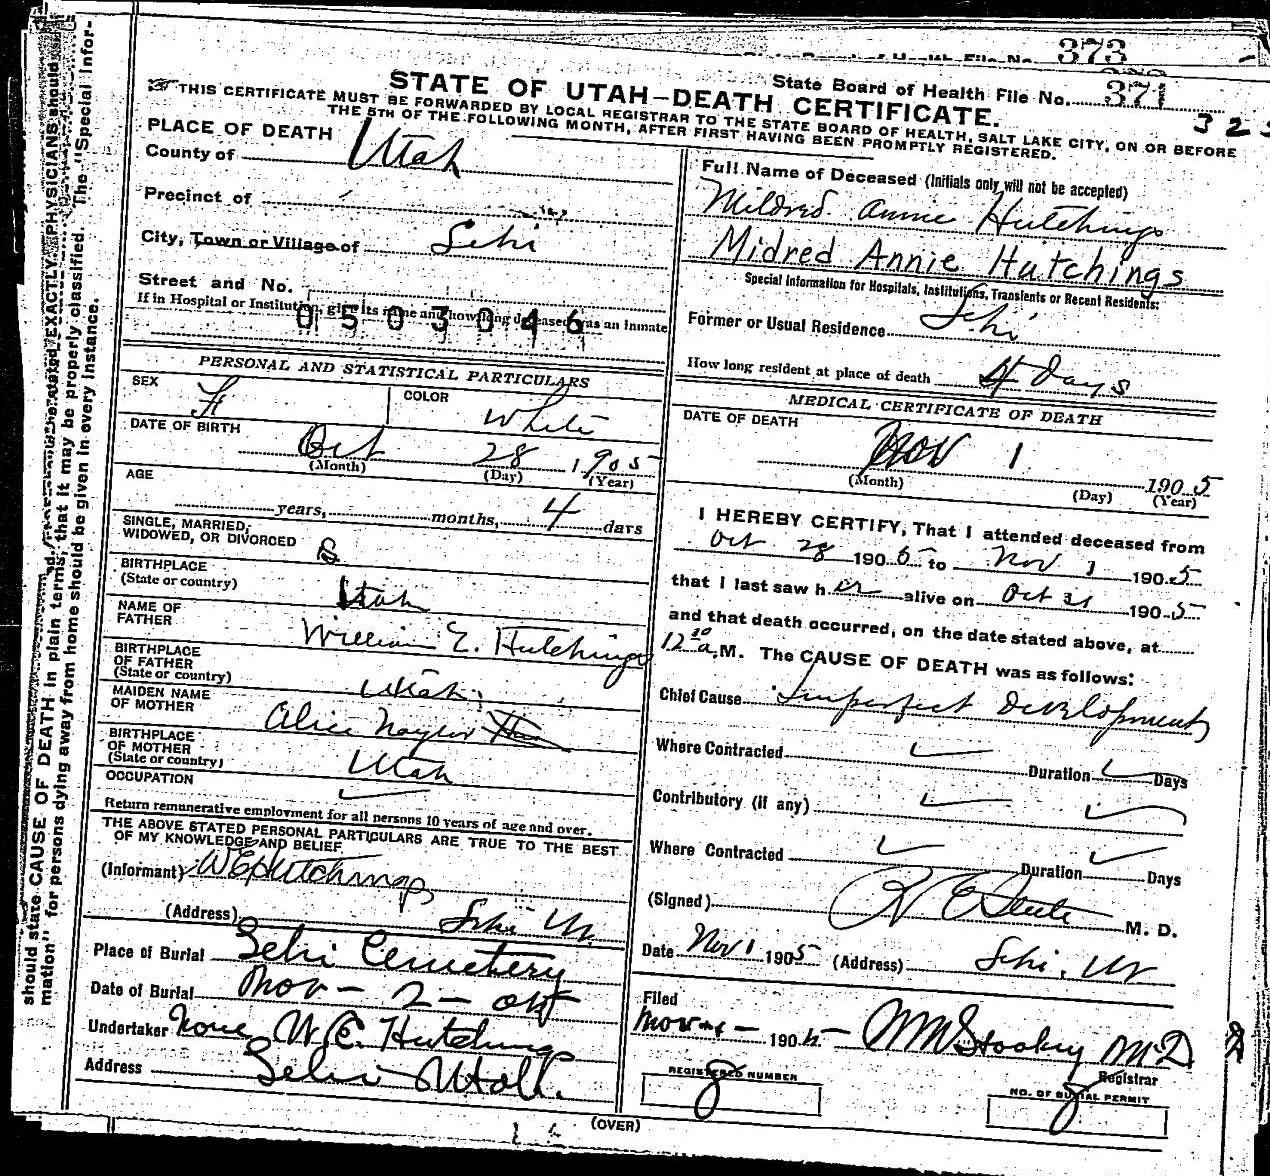 373
State Board of Health File No. 371
STATE OF UTAH—DEATH CERTIFICATE.
THIS CERTIFICATE MUST BE FORWARDED BY LOCAL REGISTRAR TO THE STATE BOARD OF HEALTH, SALT LAKE CITY, ON OR BEFORE
THE 5TH OF THE FOLLOWING MONTH, AFTER FIRST HAVING BEEN PROMPTLY REGISTERED.
PLACE OF DEATH
County of Utah
Precinct of
City, Town or Village of Lehi
Street and No.
If in Hospital or Institution, give its name and how long deceased was an inmate
0503046
PERSONAL AND STATISTICAL PARTICULARS
SEX F
COLOR White
DATE OF BIRTH
Oct 28 1905
(Month) (Day) (Year)
AGE
years, months, 4 days
SINGLE, MARRIED,
WIDOWED, OR DIVORCED S
BIRTHPLACE
(State or country) Utah
NAME OF
FATHER William E. Hutchings
BIRTHPLACE
OF FATHER
(State or country) Utah
MAIDEN NAME
OF MOTHER Alice Naylor
BIRTHPLACE
OF MOTHER
(State or country) Utah
OCCUPATION
Return remunerative employment for all persons 10 years of age and over.
THE ABOVE STATED PERSONAL PARTICULARS ARE TRUE TO THE BEST
OF MY KNOWLEDGE AND BELIEF
(Informant) W E Hutchings
(Address) Lehi Ut.
Place of Burial Lehi Cemetery
Date of Burial Nov - 2 - 05
Undertaker None W. E. Hutchings
Address Lehi Utah.
Full Name of Deceased (Initials only will not be accepted)
Mildred Annie Hutchings
Midred Annie Hutchings
Special Information for Hospitals, Institutions, Transients or Recent Residents:
Former or Usual Residence Lehi
How long resident at place of death 4 days
MEDICAL CERTIFICATE OF DEATH
DATE OF DEATH
Nov 1 1905
(Month) (Day) (Year)
I HEREBY CERTIFY, That I attended deceased from
Oct 28 1905 to Nov 1 1905
that I last saw her alive on Oct 31 1905
and that death occurred, on the date stated above, at
12 30 a. M. The CAUSE OF DEATH was as follows:
Chief Cause Imperfect Development
Where Contracted Duration Days
Contributory (if any)
Where Contracted Duration Days
(Signed) R E Steele M. D.
Date Nov 1 1905 (Address) Lehi, Ut
Filed
Nov 190 WM Stookey M.D.
Registrar
REGISTERED NUMBER
8
NO. OF BURIAL PERMIT
8
(OVER)
should state CAUSE OF DEATH in plain terms, that it may be properly classified. The "Special Infor-
mation" for persons dying away from home should be given in every instance.